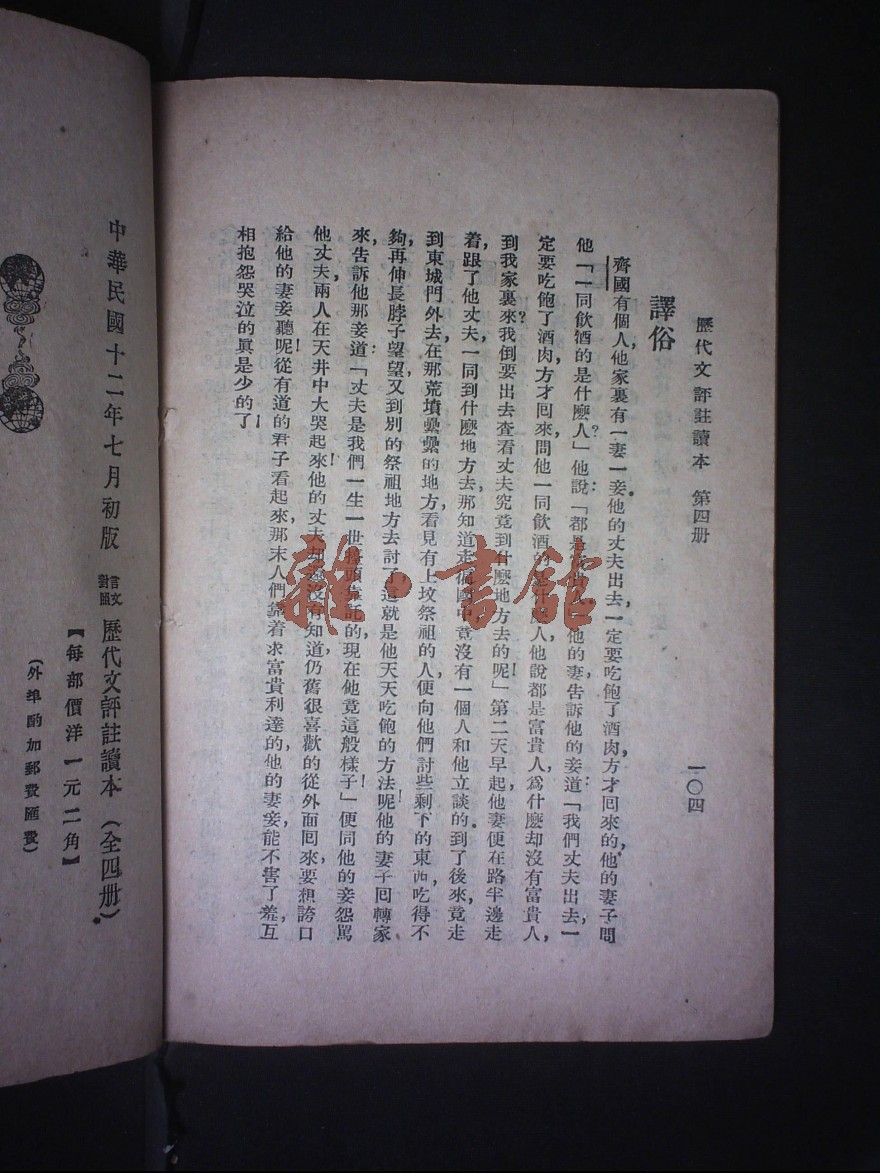 歷代文評註讀本 第四册
一〇四
譯俗
齊國有個人，他家裏有一妻一妾。他的丈夫出去，一定要吃飽了酒肉，方才回來的，他的妻子問
他「一同飲酒的是什麽人？」他說：「都是富貴人」他的妻告訴他的妾道：「我們丈夫出去，一
定要吃飽了酒肉方才回來問他一同飲酒的是什麽人，他說都是富貴人，爲什麽却沒有富貴人，
到我家裏來？我倒要出去查看丈夫究竟到什麽地方去的呢！」第二天早起他妻便在路半邊走
着，跟了他丈夫，一同到什麽地方去，那知道走徧國中，竟沒有一個人和他立談的。到了後來，竟走
到東城門外去，在那荒墳纍纍的地方，看見有上坟祭祖的人，便向他們討些剩下的東西，吃得不
夠，再伸長脖子望望，又到別的祭祖地方去討了。這就是他天天吃飽的方法呢！他的妻子回轉家
來，告訴他那妾道：「丈夫是我們一生一世擡頭靠託的，現在他竟這般樣子！」便同他的妾怨駡
他丈夫兩人在天井中大哭起來！他的丈夫却還沒有知道，仍舊很喜歡的從外面囘來，要想誇口
給他的妻妾聽呢！從有道的君子看起來，那末人們靠着求富貴利達的，他的妻妾，能不害了羞，互
相抱怨哭泣的眞是少的了！
中華民國十二年七月初版
言文對照 歷代文評註讀本（全四册）
【每部價洋一元二角】
（外埠酌加郵費匯費）
雜·書館